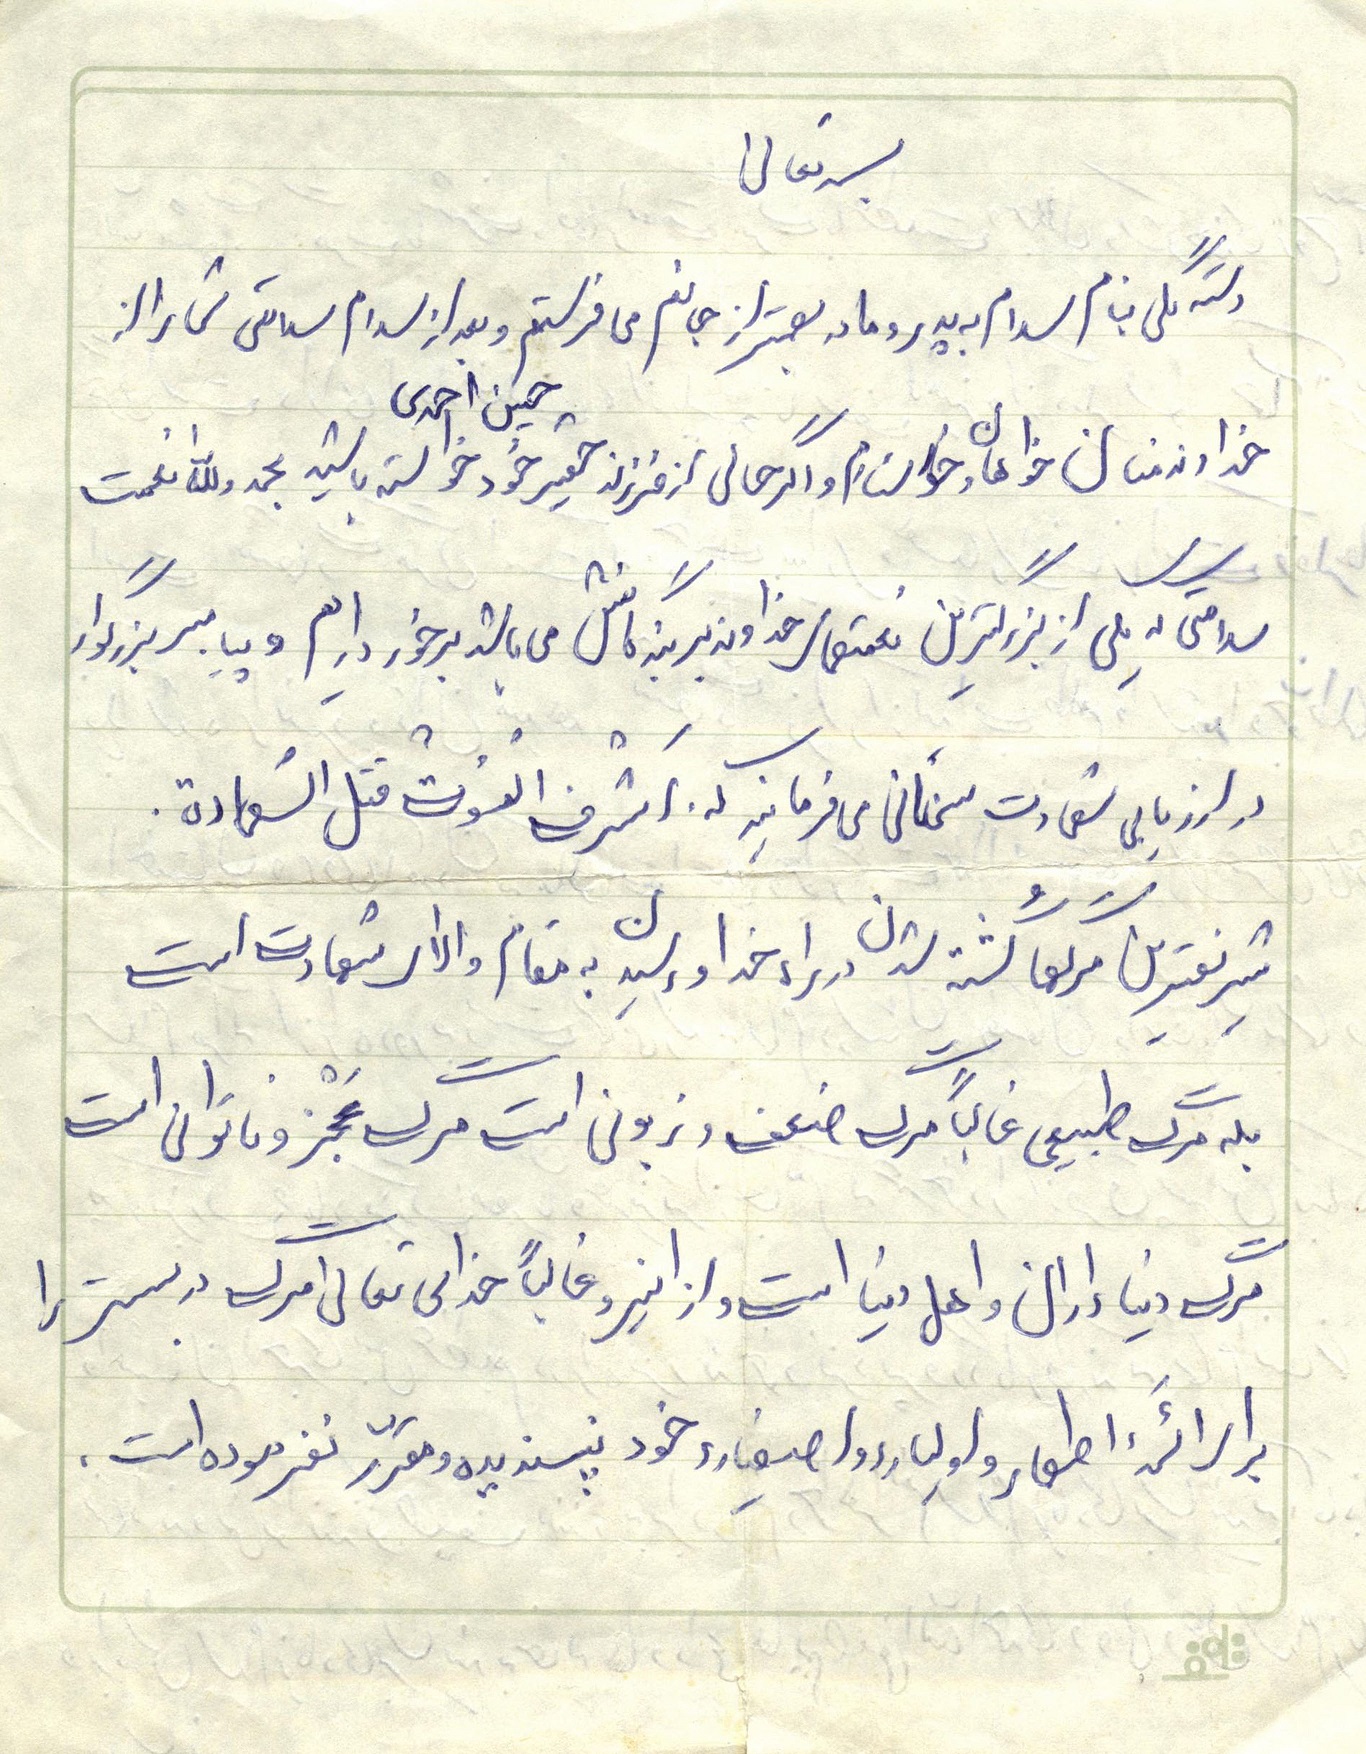 بسمه تعالی
دسته گلی بنام سلام به پدر و مادر بهتر از جانم می فرستم و بعد از سلام سلامتی شما را از
حسین احمدی
خداوند منان خواهان و خواستارم و اگر حالی از فرزند حقیر خود خواسته باشید بحمدولله نعمت
سلامتی که یکی از بزرگترین نعمتهای خداوند بر بندگانش می باشد برخوردارم و پیامبر بزرگوار
در ارزیابی شهادت سخنانی می فرمایند که: اَشرف المَوت قتل الشهادة.
شریفترین مرگها کُشته شدن در راه خدا و رسیدن به مقام والای شهادت است
بله مرگ طبیعی غالباً مرگ ضعف و زبونی است مرگ عَجْز و ناتوانی است
مرگ دنیاداران و اهل دنیا است و از اینرو غالباً خدای تعالی مرگ در بستر را
برای ائمهٔ اطهار و اولیاء و اصفیاء خود نپسندیده و مقرّر نفرموده است.